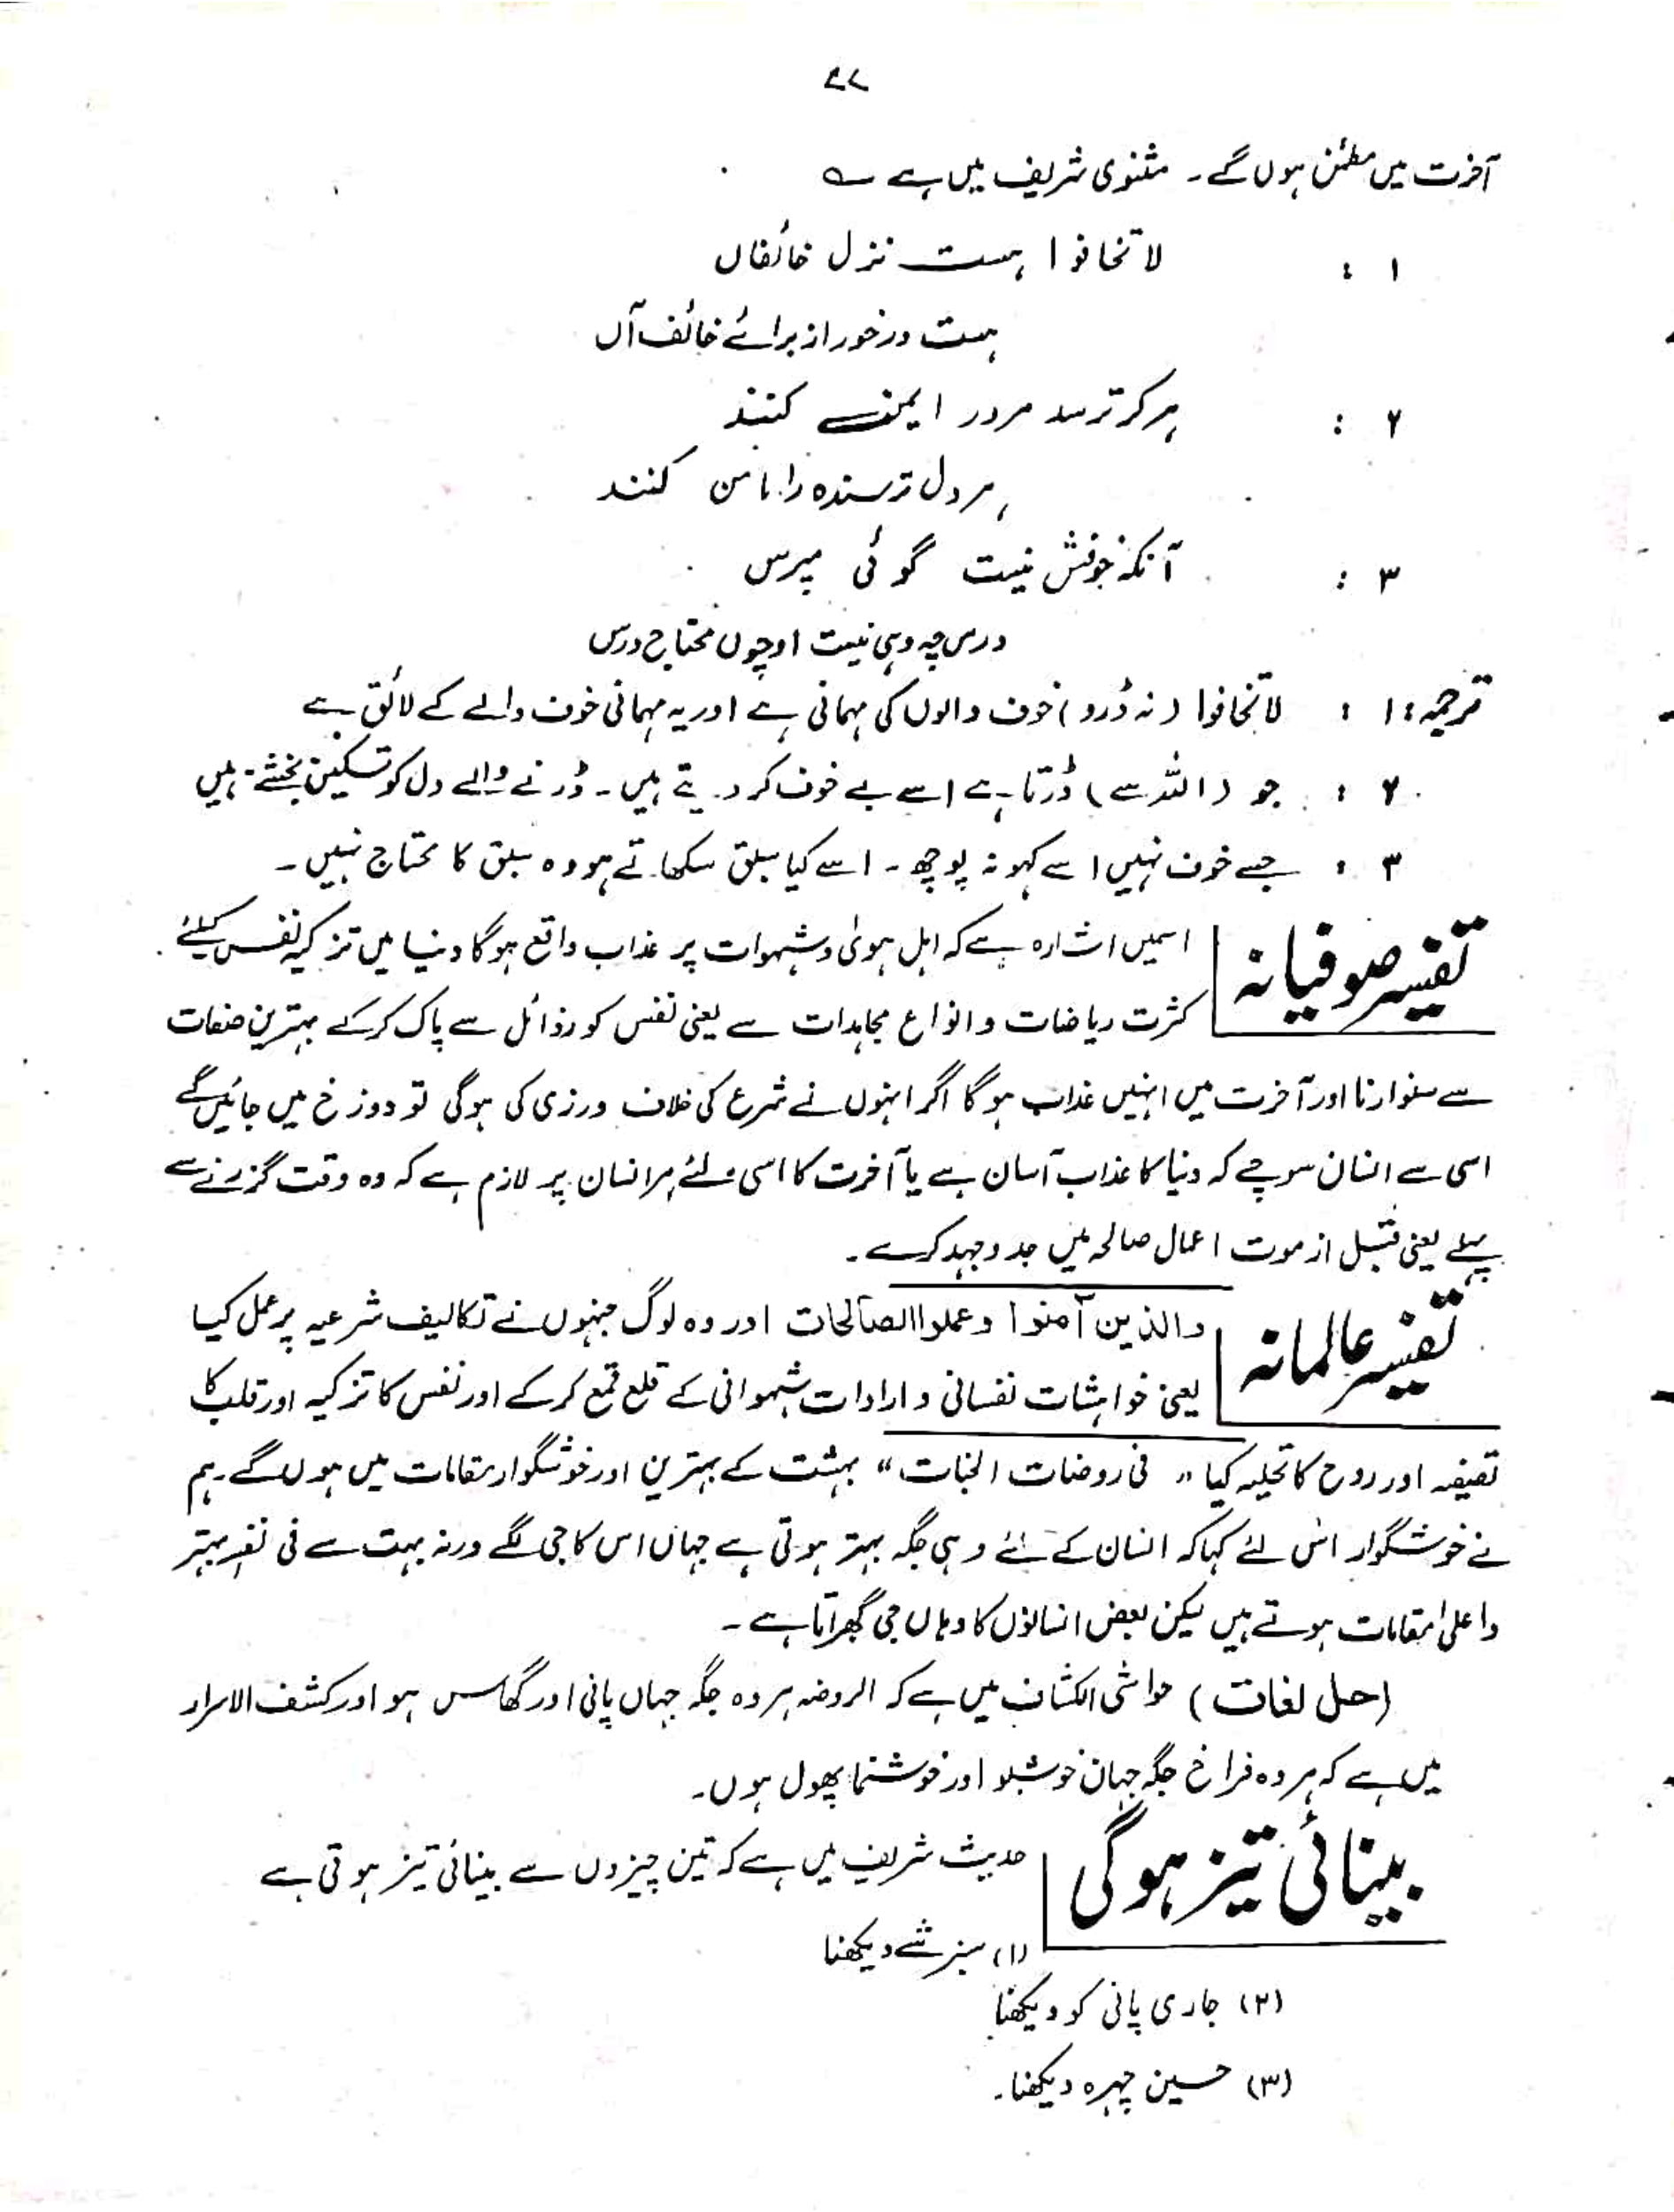 ۸۷
آخرت میں مطمئن ہوں گے۔ مثنوی شریف میں ہے ؎
۱ : لاتخافوا ہست نزل خائفاں
ہست درخور از برائے خائف آں
۲ : ہرکہ ترسد مرورا ایمن کنند
ہر دل ترسندہ را ساکن کنند
۳ : آنکہ خوفش نیست گوئی مپرس
درس چہ دہی نیست او چوں محتاج درس
ترجمہ : ۱ : لاتخافوا (نہ ڈرو) خوف والوں کی مہمانی ہے اور یہ مہمانی خوف والے کے لائق ہے
۲ : جو (اللہ سے) ڈرتا ہے اسے بے خوف کر دیتے ہیں۔ ڈرنے والے دل کو تسکین بخشتے ہیں
۳ : جسے خوف نہیں اسے کہو نہ پوچھ۔ اسے کیا سبق سکھاتے ہو وہ سبق کا محتاج نہیں۔
تفسیر صوفیانہ اسمیں اشارہ ہے کہ اہل ہویٰ و شہوات پر عذاب واقع ہوگا دنیا میں تزکیہ نفس کیلئے
کثرت ریاضات و انواع مجاہدات سے یعنی نفس کو رذائل سے پاک کرکے بہترین صفات
سے سنوارنا اور آخرت میں انہیں عذاب ہوگا اگر انہوں نے شرع کی خلاف ورزی کی ہوگی تو دوزخ میں جائیں گے
اسی سے انسان سوچے کہ دنیا کا عذاب آسان ہے یا آخرت کا اسی لئے ہر انسان پر لازم ہے کہ وہ وقت گزرنے سے
پہلے یعنی قبل از موت اعمال صالحہ میں جد و جہد کرے۔
تفسیر عالمانہ والذین آمنوا وعملوا الصالحات اور وہ لوگ جنہوں نے تکالیف شرعیہ پر عمل کیا
یعنی خواہشات نفسانی و ارادات شہوانی کے قلع قمع کرکے اور نفس کا تزکیہ اور قلب کا
تصفیہ اور روح کا تحلیہ کیا ” فی روضات الجنات “ بہشت کے بہترین اور خوشگوار مقامات میں ہوں گے۔ ہم
نے خوشگوار اس لئے کہا کہ انسان کے لئے وہی جگہ بہتر ہوتی ہے جہاں اس کا جی لگے ورنہ بہت سے فی نفسہٖ بہتر
واعلیٰ مقامات ہوتے ہیں لیکن بعض انسانوں کا وہاں جی گھبراتا ہے۔
(حل لغات) حواشی الکشاف میں ہے کہ الروضہ ہر وہ جگہ جہاں پانی اور گھاس ہو اور کشف الاسرار
میں ہے کہ ہر وہ فراخ جگہ جہاں خوشبو اور خوشنما پھول ہوں۔
بینائی تیز ہوگی حدیث شریف میں ہے کہ تین چیزوں سے بینائی تیز ہوتی ہے
(۱) سبز شے دیکھنا
(۲) جاری پانی کو دیکھنا
(۳) حسین چہرہ دیکھنا۔